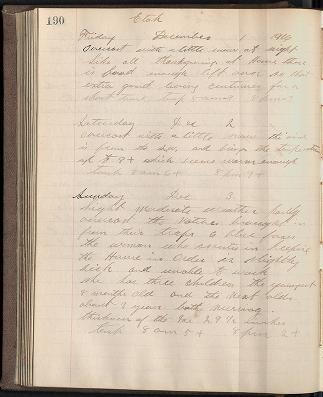 190
Etah
Friday December 1 1916
Overcast with a little snow at night
Like all Thanksgiving at Home there
is food enough left over so that
extra good living continues for a
short time temp 8 am 8 pm
Saturday Dec 2
Overcast with a little snow the wind
is from the and brings the temperature
up to 9+ which seems warm enough
temp 8 am 6+ 8 pm 9+
Sunday Dec 3
bright moderate weather partly
overcast the Natives brought in
from their traps 2 blue foxes
the woman who assists in keeping
the House in Order is slightly
sick and unable to work
she has three children the youngest
8 months old and the next oldest
about 3 years both nursing
thickness of the Ice 29 ½ inches
temp 8 am 5+ 8 pm 2+